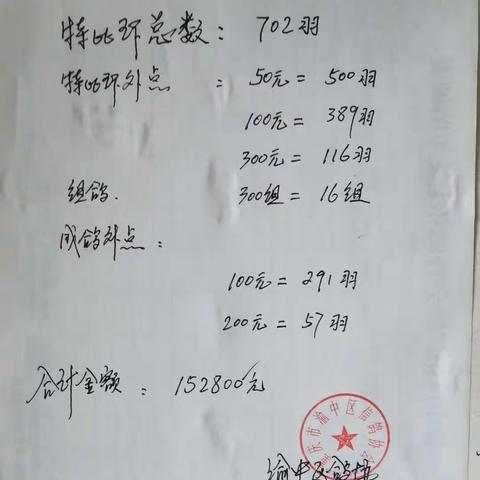 特比环总数： 702羽
特比环外点 ： 50元 = 500羽
100元 = 389羽
300元 = 116羽
组鸽. 300组 = 16组
成鸽外点：
100元 = 291羽
200元 = 57羽
合计金额： 152800元
重庆市渝中区信鸽协会
渝中区鸽协